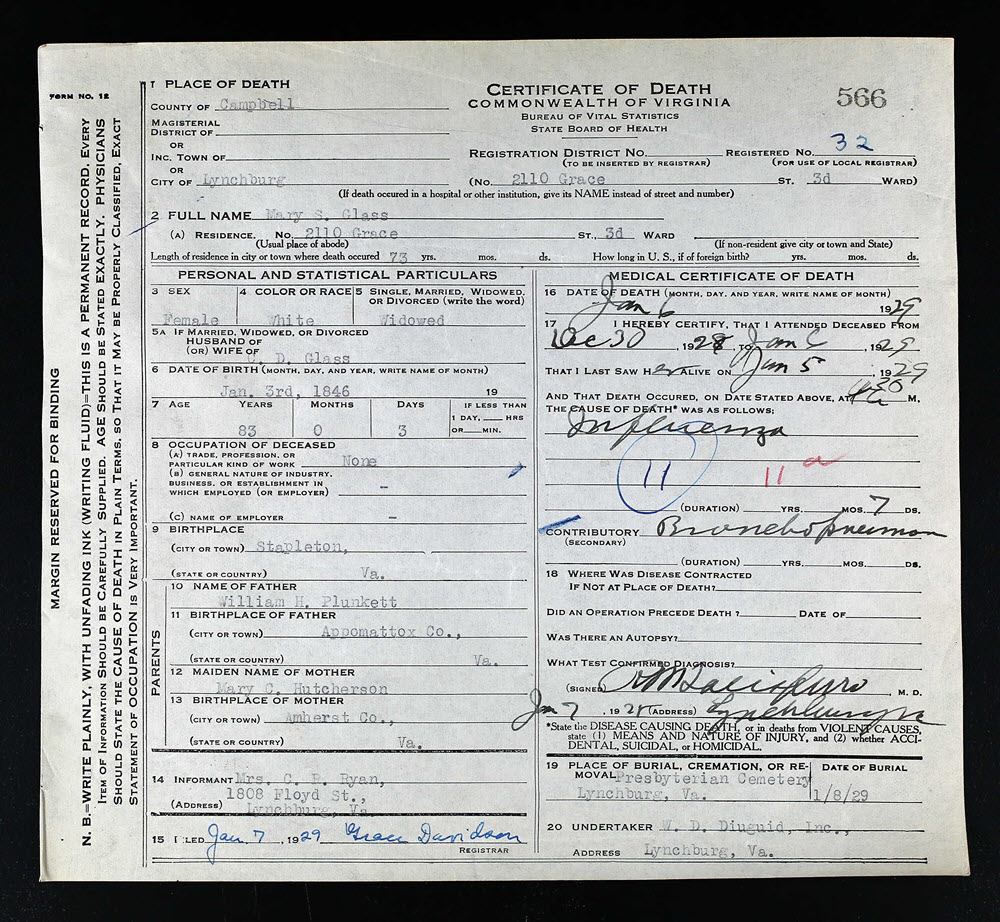 FORM NO. 12
MARGIN RESERVED FOR BINDING
N. B.=WRITE PLAINLY, WITH UNFADING INK (WRITING FLUID)=THIS IS A PERMANENT RECORD. EVERY
ITEM OF INFORMATION SHOULD BE CAREFULLY SUPPLIED. AGE SHOULD BE STATED EXACTLY. PHYSICIANS
SHOULD STATE THE CAUSE OF DEATH IN PLAIN TERMS, SO THAT IT MAY BE PROPERLY CLASSIFIED. EXACT
STATEMENT OF OCCUPATION IS VERY IMPORTANT.
1 PLACE OF DEATH
COUNTY OF Campbell
MAGISTERIAL
DISTRICT OF
OR
INC. TOWN OF
OR
CITY OF Lynchburg
CERTIFICATE OF DEATH
COMMONWEALTH OF VIRGINIA
BUREAU OF VITAL STATISTICS
STATE BOARD OF HEALTH
566
REGISTRATION DISTRICT NO. REGISTERED NO. 32
(TO BE INSERTED BY REGISTRAR) (FOR USE OF LOCAL REGISTRAR)
(No. 2110 Grace ST. 3d WARD)
(If death occured in a hospital or other institution, give its NAME instead of street and number)
2 FULL NAME Mary S. Glass
(A) RESIDENCE. No. 2110 Grace ST., 3d WARD
(Usual place of abode) (If non-resident give city or town and State)
Length of residence in city or town where death occured 73 yrs. mos. ds. How long in U. S., if of foreign birth? yrs. mos. ds.
PERSONAL AND STATISTICAL PARTICULARS
3 SEX 4 COLOR OR RACE 5 SINGLE, MARRIED, WIDOWED,
OR DIVORCED (write the word)
Female White Widowed
5A IF MARRIED, WIDOWED, OR DIVORCED
HUSBAND OF
(OR) WIFE OF
C. D. Glass
6 DATE OF BIRTH (MONTH, DAY, AND YEAR, WRITE NAME OF MONTH)
Jan. 3rd, 1846 19
7 AGE YEARS MONTHS DAYS IF LESS THAN
1 DAY, HRS
83 0 3 OR MIN.
8 OCCUPATION OF DECEASED
(A) TRADE, PROFESSION, OR
PARTICULAR KIND OF WORK None
(B) GENERAL NATURE OF INDUSTRY,
BUSINESS, OR ESTABLISHMENT IN
WHICH EMPLOYED (OR EMPLOYER) -
(C) NAME OF EMPLOYER -
9 BIRTHPLACE
(CITY OR TOWN) Stapleton,
(STATE OR COUNTRY) Va.
PARENTS
10 NAME OF FATHER
William H. Plunkett
11 BIRTHPLACE OF FATHER
(CITY OR TOWN) Appomattox Co.,
(STATE OR COUNTRY) Va.
12 MAIDEN NAME OF MOTHER
Mary C. Hutcherson
13 BIRTHPLACE OF MOTHER
(CITY OR TOWN) Amherst Co.,
(STATE OR COUNTRY) Va.
14 INFORMANT Mrs. C. R. Ryan,
1808 Floyd St.,
(ADDRESS) Lynchburg, Va.
15 FILED Jan. 7, 1929 Grace Davidson
REGISTRAR
MEDICAL CERTIFICATE OF DEATH
16 DATE OF DEATH (MONTH, DAY, AND YEAR, WRITE NAME OF MONTH)
Jan 6 1929
17 I HEREBY CERTIFY, THAT I ATTENDED DECEASED FROM
Dec 30, 1928, TO Jan 6 1929
THAT I LAST SAW HER ALIVE ON Jan 5, 1929
AND THAT DEATH OCCURED, ON DATE STATED ABOVE, AT M.
THE CAUSE OF DEATH* WAS AS FOLLOWS;
Influenza
11 11 a
(DURATION) YRS. MOS. 7 DS.
CONTRIBUTORY Bronchopneumon
(SECONDARY)
(DURATION) YRS. MOS. DS.
18 WHERE WAS DISEASE CONTRACTED
IF NOT AT PLACE OF DEATH?
DID AN OPERATION PRECEDE DEATH? DATE OF
WAS THERE AN AUTOPSY?
WHAT TEST CONFIRMED DIAGNOSIS?
(SIGNED) M. D.
Jan 7, 192 (ADDRESS) Lynchburg Va
*State the DISEASE CAUSING DEATH, or in deaths from VIOLENT CAUSES,
state (1) MEANS AND NATURE OF INJURY, and (2) whether ACCI-
DENTAL, SUICIDAL, or HOMICIDAL.
19 PLACE OF BURIAL, CREMATION, OR RE- DATE OF BURIAL
MOVAL Presbyterian Cemetery
Lynchburg, Va. 1/8/29
20 UNDERTAKER W. D. Diuguid, Inc.,
ADDRESS Lynchburg, Va.